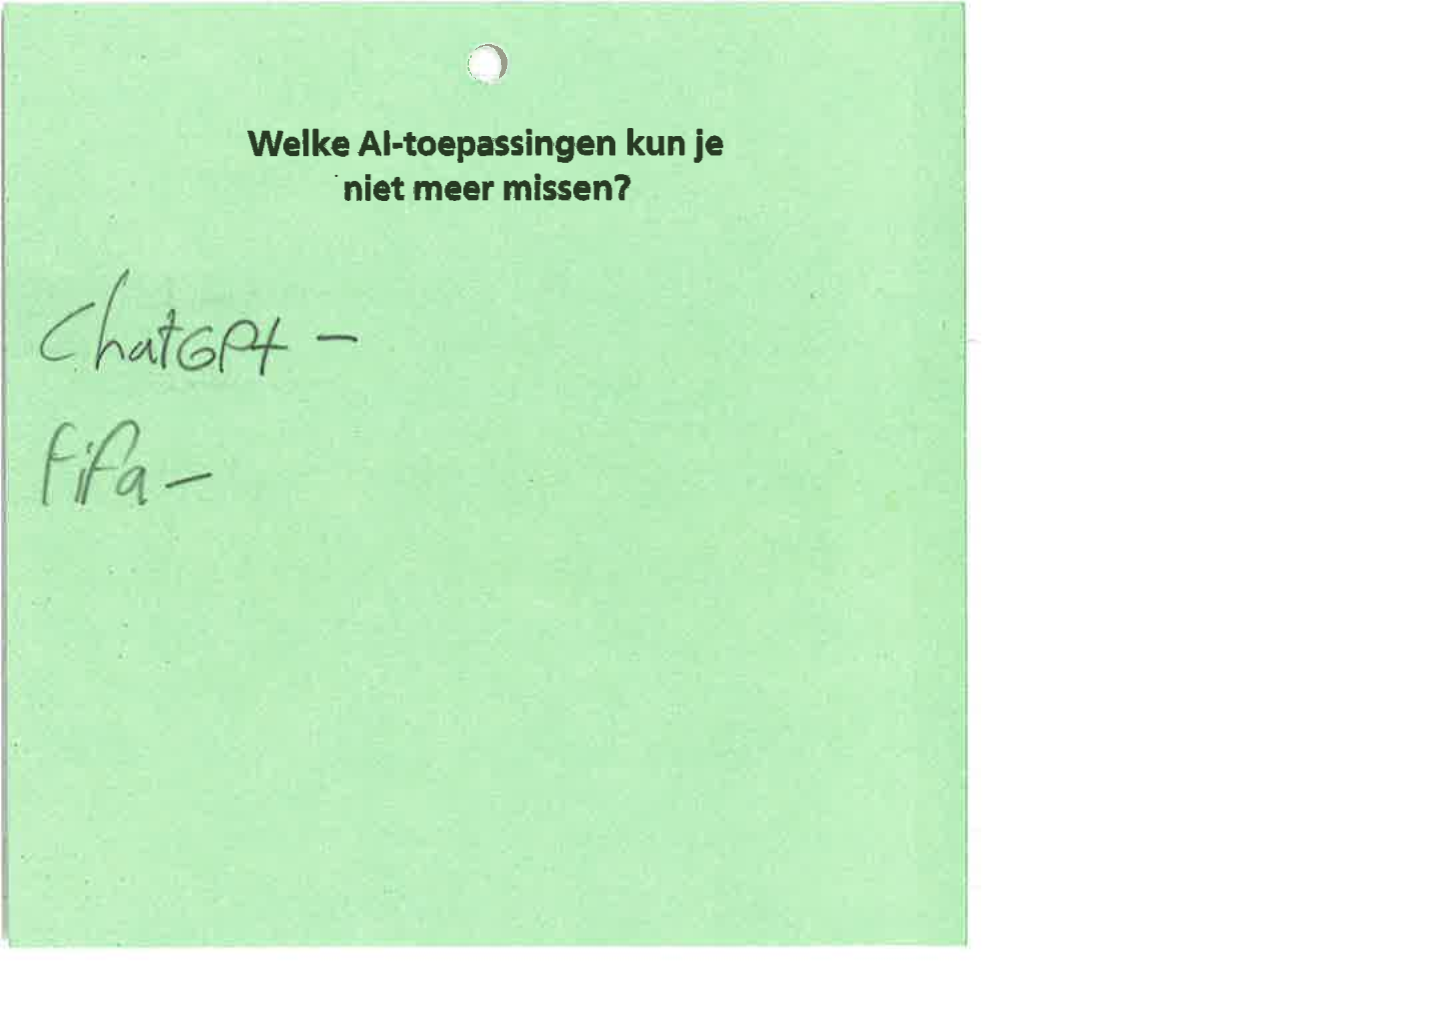 Welke AI-toepassingen kun je
niet meer missen?
ChatGPt -
fifa -